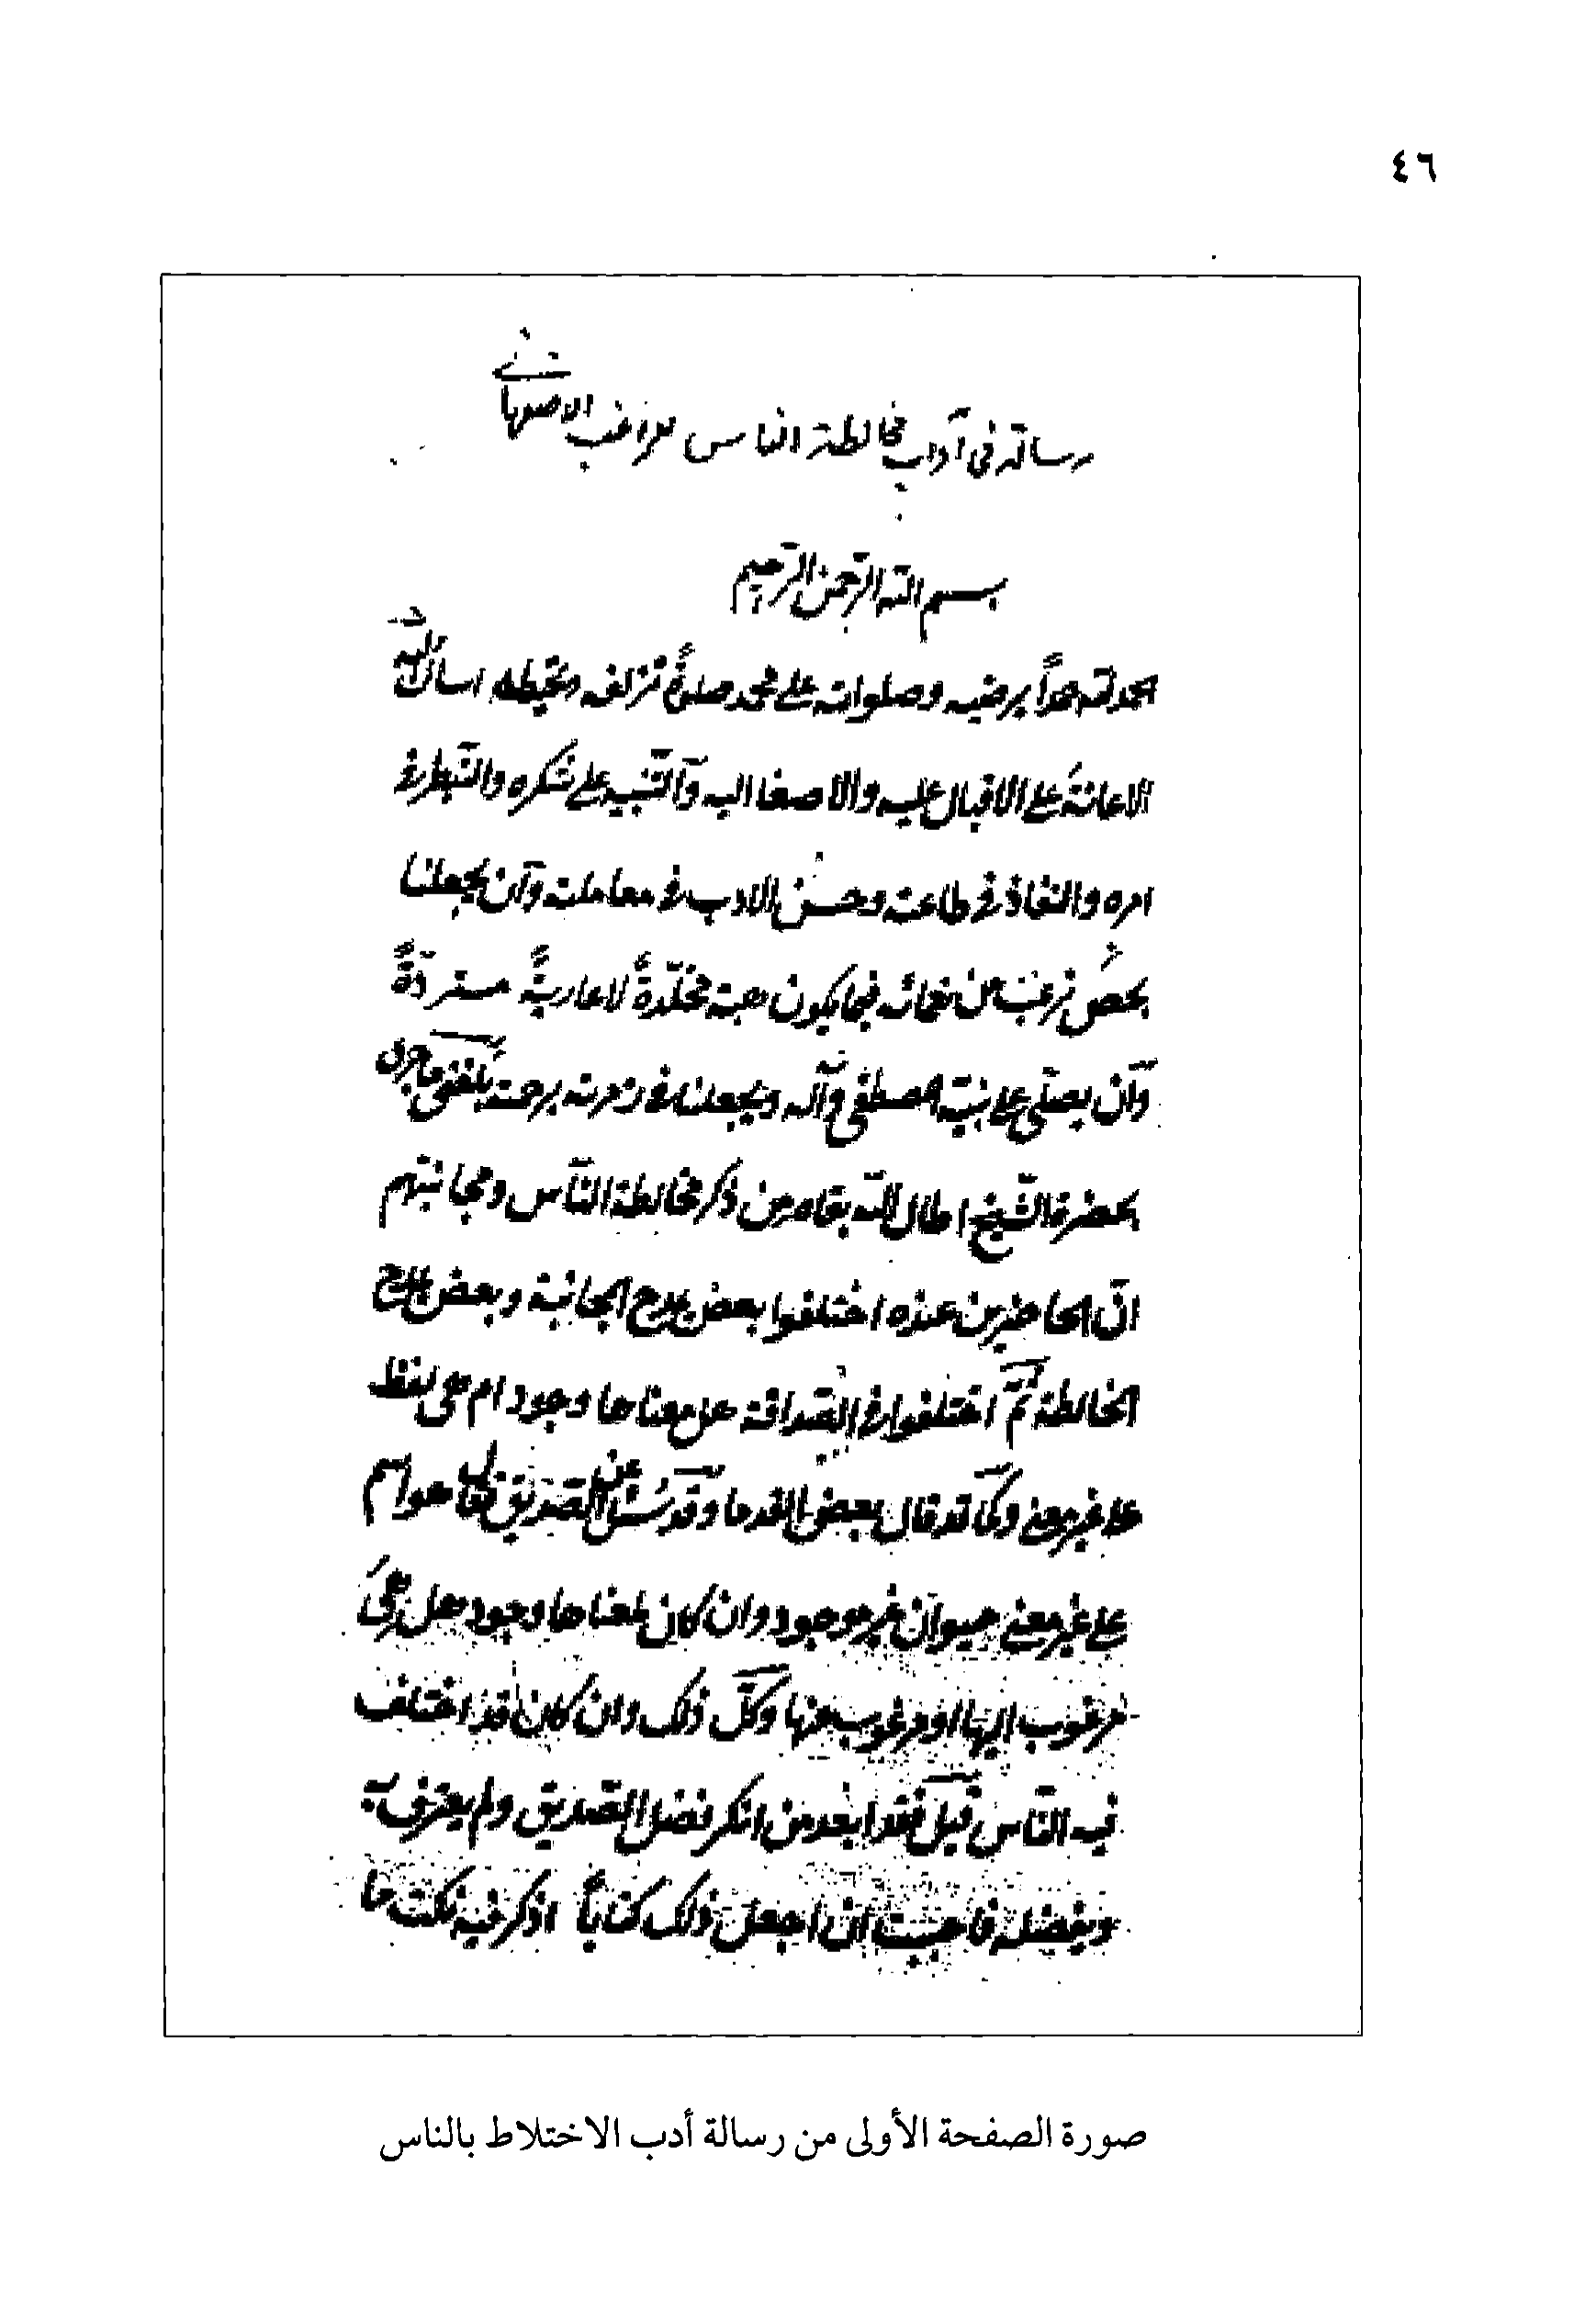 ٤٦
رسالة فى آداب مخالطة الناس للراغب الاصفهانى
بسم الله الرحمن الرحيم
الحمد لله حمداً يرضيه وصلواته على محمد صلوةً تزلفه وتحيطه اسأل الله
الاعانة على الاقبال عليه والاصغا اليه وآلتنبيه على شكره والنظر فى
امره والنفاذ فى طاعته وحسن الادب فى معاملته وآن يجعلنا
من نعمائه فيما يكون هبة مخلّدةً لا عاريةً مستردّةً
وآن يصلّى على نبيّه المصطفى وآله ويجعلنا فى زمرته برحمته بلغنى ما جرى
بحضرة الشّيخ اطال الله بقاه من ذكر مخالطة النّاس ومجانبتهم
انّ الحاضرين عنده اختلفوا بعض مدح المجانبة وبعض مدح
المخالطة ثمّ اختلفوا فى الصّداقة هل معناها وجود ام هى لفظ
على غير معنى وكما قد قال بعض القدما وقد سئل عن الصّديق فقال هو اسم
على غير معنى حيوان غير موجود وان كان لمعناها وجود هل هى
مرغوب اليها او مرغوب عنها وكلّ ذلك وان كان قد اختلف
فيه النّاس قبل فقد ابعد من انكر فضل الصّديق ولم يعترف به
وبفضله فاحببت ان اجعل ذلك كتاباً اذكر فيه نكت ما
صورة الصفحة الأولى من رسالة أدب الاختلاط بالناس